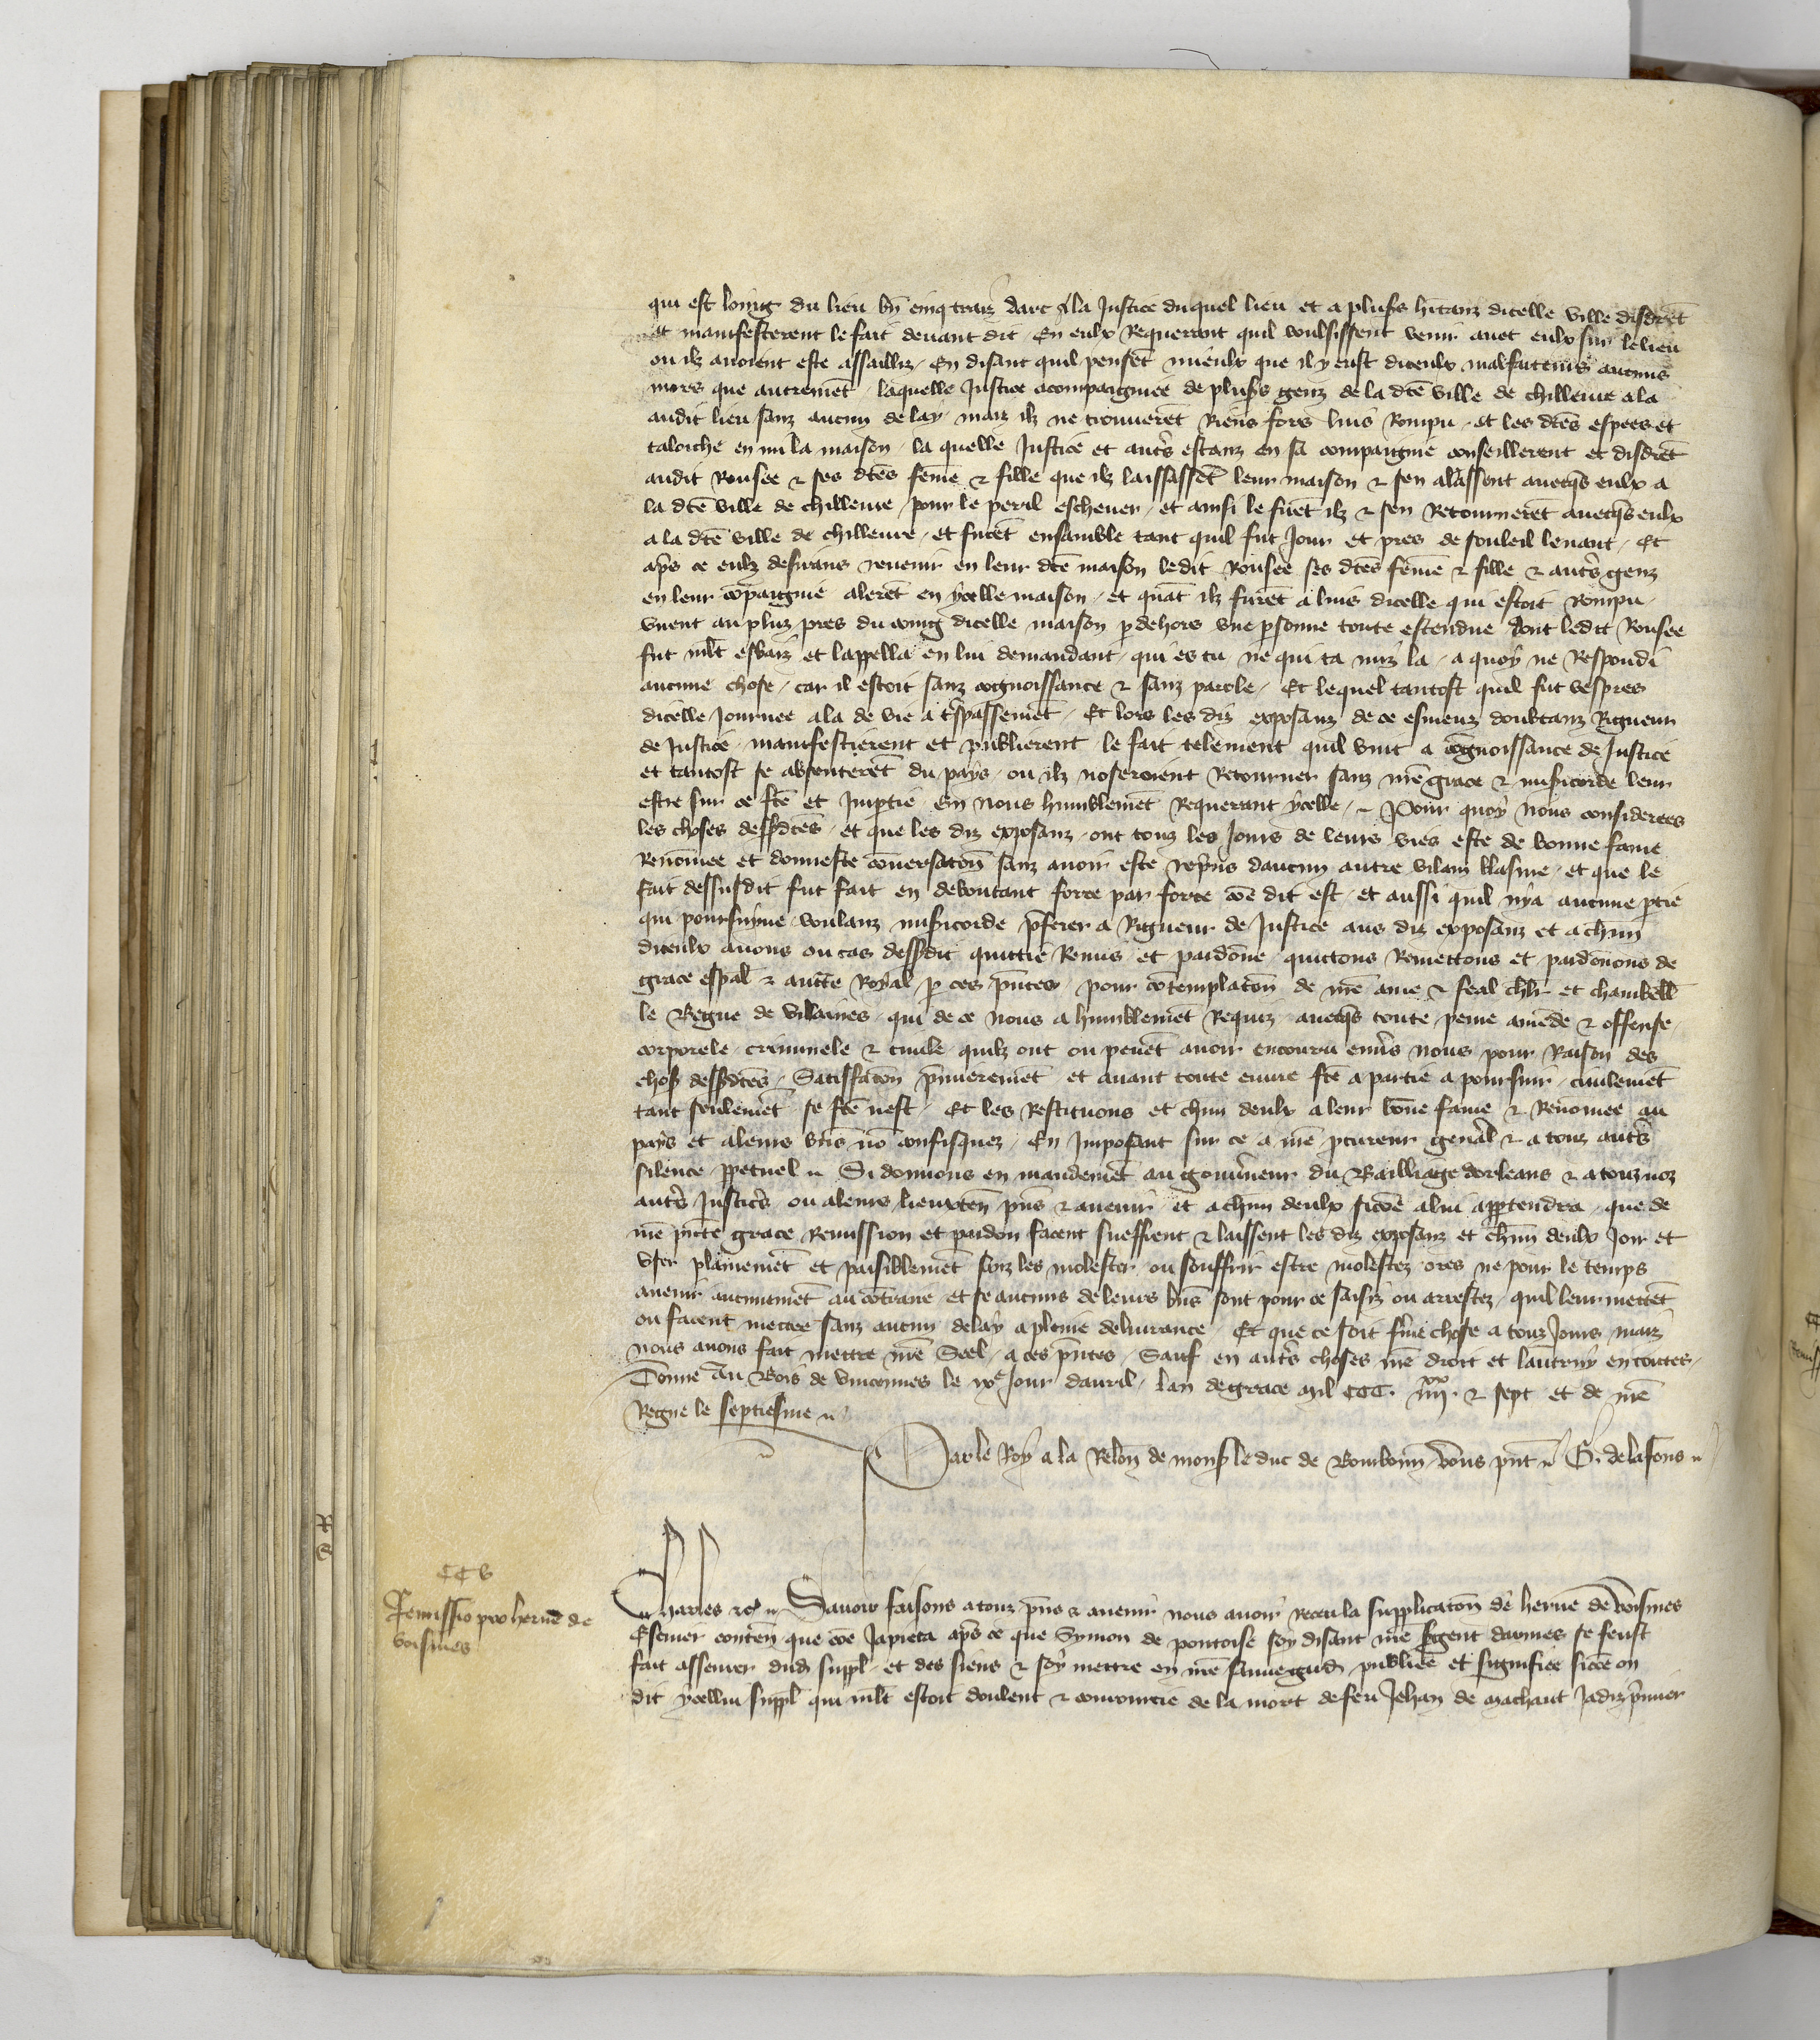 qui est loing du lieu bn̄ cinq traiz darc a la Justice duquel lieu et a plus̄s hītanz dicelle ville disdrēt
et manifesterent le fait deuant dit En eulx Requerant quil voulsissent venir auec eulx sur le lieu
ou ilz auoient este assailliz En disant quil pensēt mieulx que il y eust diceulx malfaitteurs aucuns
mors que autremēt laquelle Justice acompaigniee de plus̄s genz de la dc̄e ville de chilleure ala
audit lieu sanz aucun delay maiz ilz ne trouuerēt Riens fors luis Rompu et les dc̄es espees et
taloiche en mi la maison la quelle Justice et aut̄s estanz en sa compaignie conseillerent et disdrēt
audit Rousee & ses dc̄es fēme & fille que ilz laissassēt leur maison & sen alassent auecq̄s eulx a
la dc̄e ville de chilleure pour le peril escheuer et ainsi le firēt ilz & sen Retournerēt auecq̄s eulx
a la dc̄e ville de chilleure et furēt ensamble tant quil fut Jour et pres de souleil leuant Et
ap̄s ce eulz desirans reuenir en leur dc̄e maison ledit Rousee ses dc̄es fēme & fille & aut̄s genz
en leur cōpaignie alerēt en ycelle maison et quāt ilz furēt a luis dicelle qui estoit Rompu
virent au pluz pres du coing dicelle maison p dehors vne psonne toute estendue dont ledit Rousee
fut ml̄t esbaiz et lappella en lui demandant qui es tu ne qui ta miz la a quoy ne Respondi
aucune chose car il estoit sanz cognoissance & sanz parole Et lequel tantost quil fut vespres
dicelle Journee ala de vie a t̄spassemēt Et lors les diz exposanz de ce esmeuz doubtanz Rigueur
de Justice manifestierent et publierent le fait telement quil vint a cōgnoissance de Justice
et tantost se absenterēt du pays ou ilz noseroient Retourner sanz nr̄e grace & mis̄icorde leur
estre sur ce fc̄e et Imp̄tie En nous humblemēt Requerant ycelle Pour quoy nous considerees
les choses dess̄dc̄es et que les diz exposanz ont touz les Jours de leurs vies este de bonne fame
Renōmee et donneste cōuersacōn sanz auoir este rep̄ns daucun autre vilain blasme et que le
fait dessusdit fut fait en deboutant force par force cōe dit est et aussi quil nya aucune p̄tie
qui poursuyue voulanz mis̄icorde p̄ferer a Rigueur de Justice aus diz exposanz et a chūn
diceulx auons ou cas dess̄dit quittie Remis et pardōne quittons Remettons et pardōnons de
grace esp̄al & auctē Royal p ces p̄ntes pour cōtemplacōn de nr̄e ame & feal chlr̄ et chambell̄
le Begue de Villaines qui de ce nous a humblemēt Requiz auecq̄s toute peine amēde & offense
corporele criminele & ciuile quilz ont ou peuēt auoir encouru enūs nous pour Raison des
chos̄ dess̄dc̄es Satisfacōn p̄mieremēt et auant toute euure fc̄e a partie a poursuir ciuilemēt
tant seulemēt se fc̄e nest Et les Restituons et chūn deulx a leur bōne fame & Renōmee au
pays et a leurs bn̄s nō confisquez En Imposant sur ce a nr̄e p̄cureur gen̄al & a touz aut̄s
silence p̄petuel Si donnons en mandemēt au gouūneur du Bailliage dorleans & a touz noz
aut̄s Justic̄s ou a leurs lieuxten̄ p̄ns & auenir et a chūn deulx sicōe a lui app̄tendra que de
nr̄e p̄nte grace Remission et pardon facent sueffrent & laissent les diz exposanz et chūn deulx Joir et
vser plainemēt et paisiblemēt sanz les molester ou souffrir estre molestez ores ne pour le temps
auenir aucunemēt au cōtraire et se aucuns de leurs bn̄s sont pour ce saisiz ou arrestez quil leur mettēt
ou facent mettre sanz aucun delay a pleine deliurance Et que ce soit fm̄e chose a touz Jours maiz
nous auons fait mettre nr̄e Seel a ces p̄ntes Sauf en aut̄s choses nr̄e droit et lautruy en toutes
Donne Au Bois de vincennes le ixe Jour dauril lan de grace mil CCC. iiiixx & sept et de nr̄e
Regne le septiesme
Par le Roy a la Relōn de mons̄ le duc de Bourbonn̄ vous p̄nt G. de lafons
CC V
Remissio pro herue de
voisines
Charles &c̄ Sauoir faisons a touz p̄ns & auenir nous auoir receu la supplicacōn de herue de voisines
Escuier conten̄ que cōe Japieca ap̄s ce que Symon de pontoise soy disant nr̄e s̄gent darmes se feust
fait asseurer dud̄ suppl̄ et des siens & soy mettre en nr̄e sauuegard̄ publiee et signifiee sicōe on
dit ycellui suppl̄ qui ml̄t estoit doulent & courroucie de la mort de feu Jehan de machaut Jadiz p̄mier